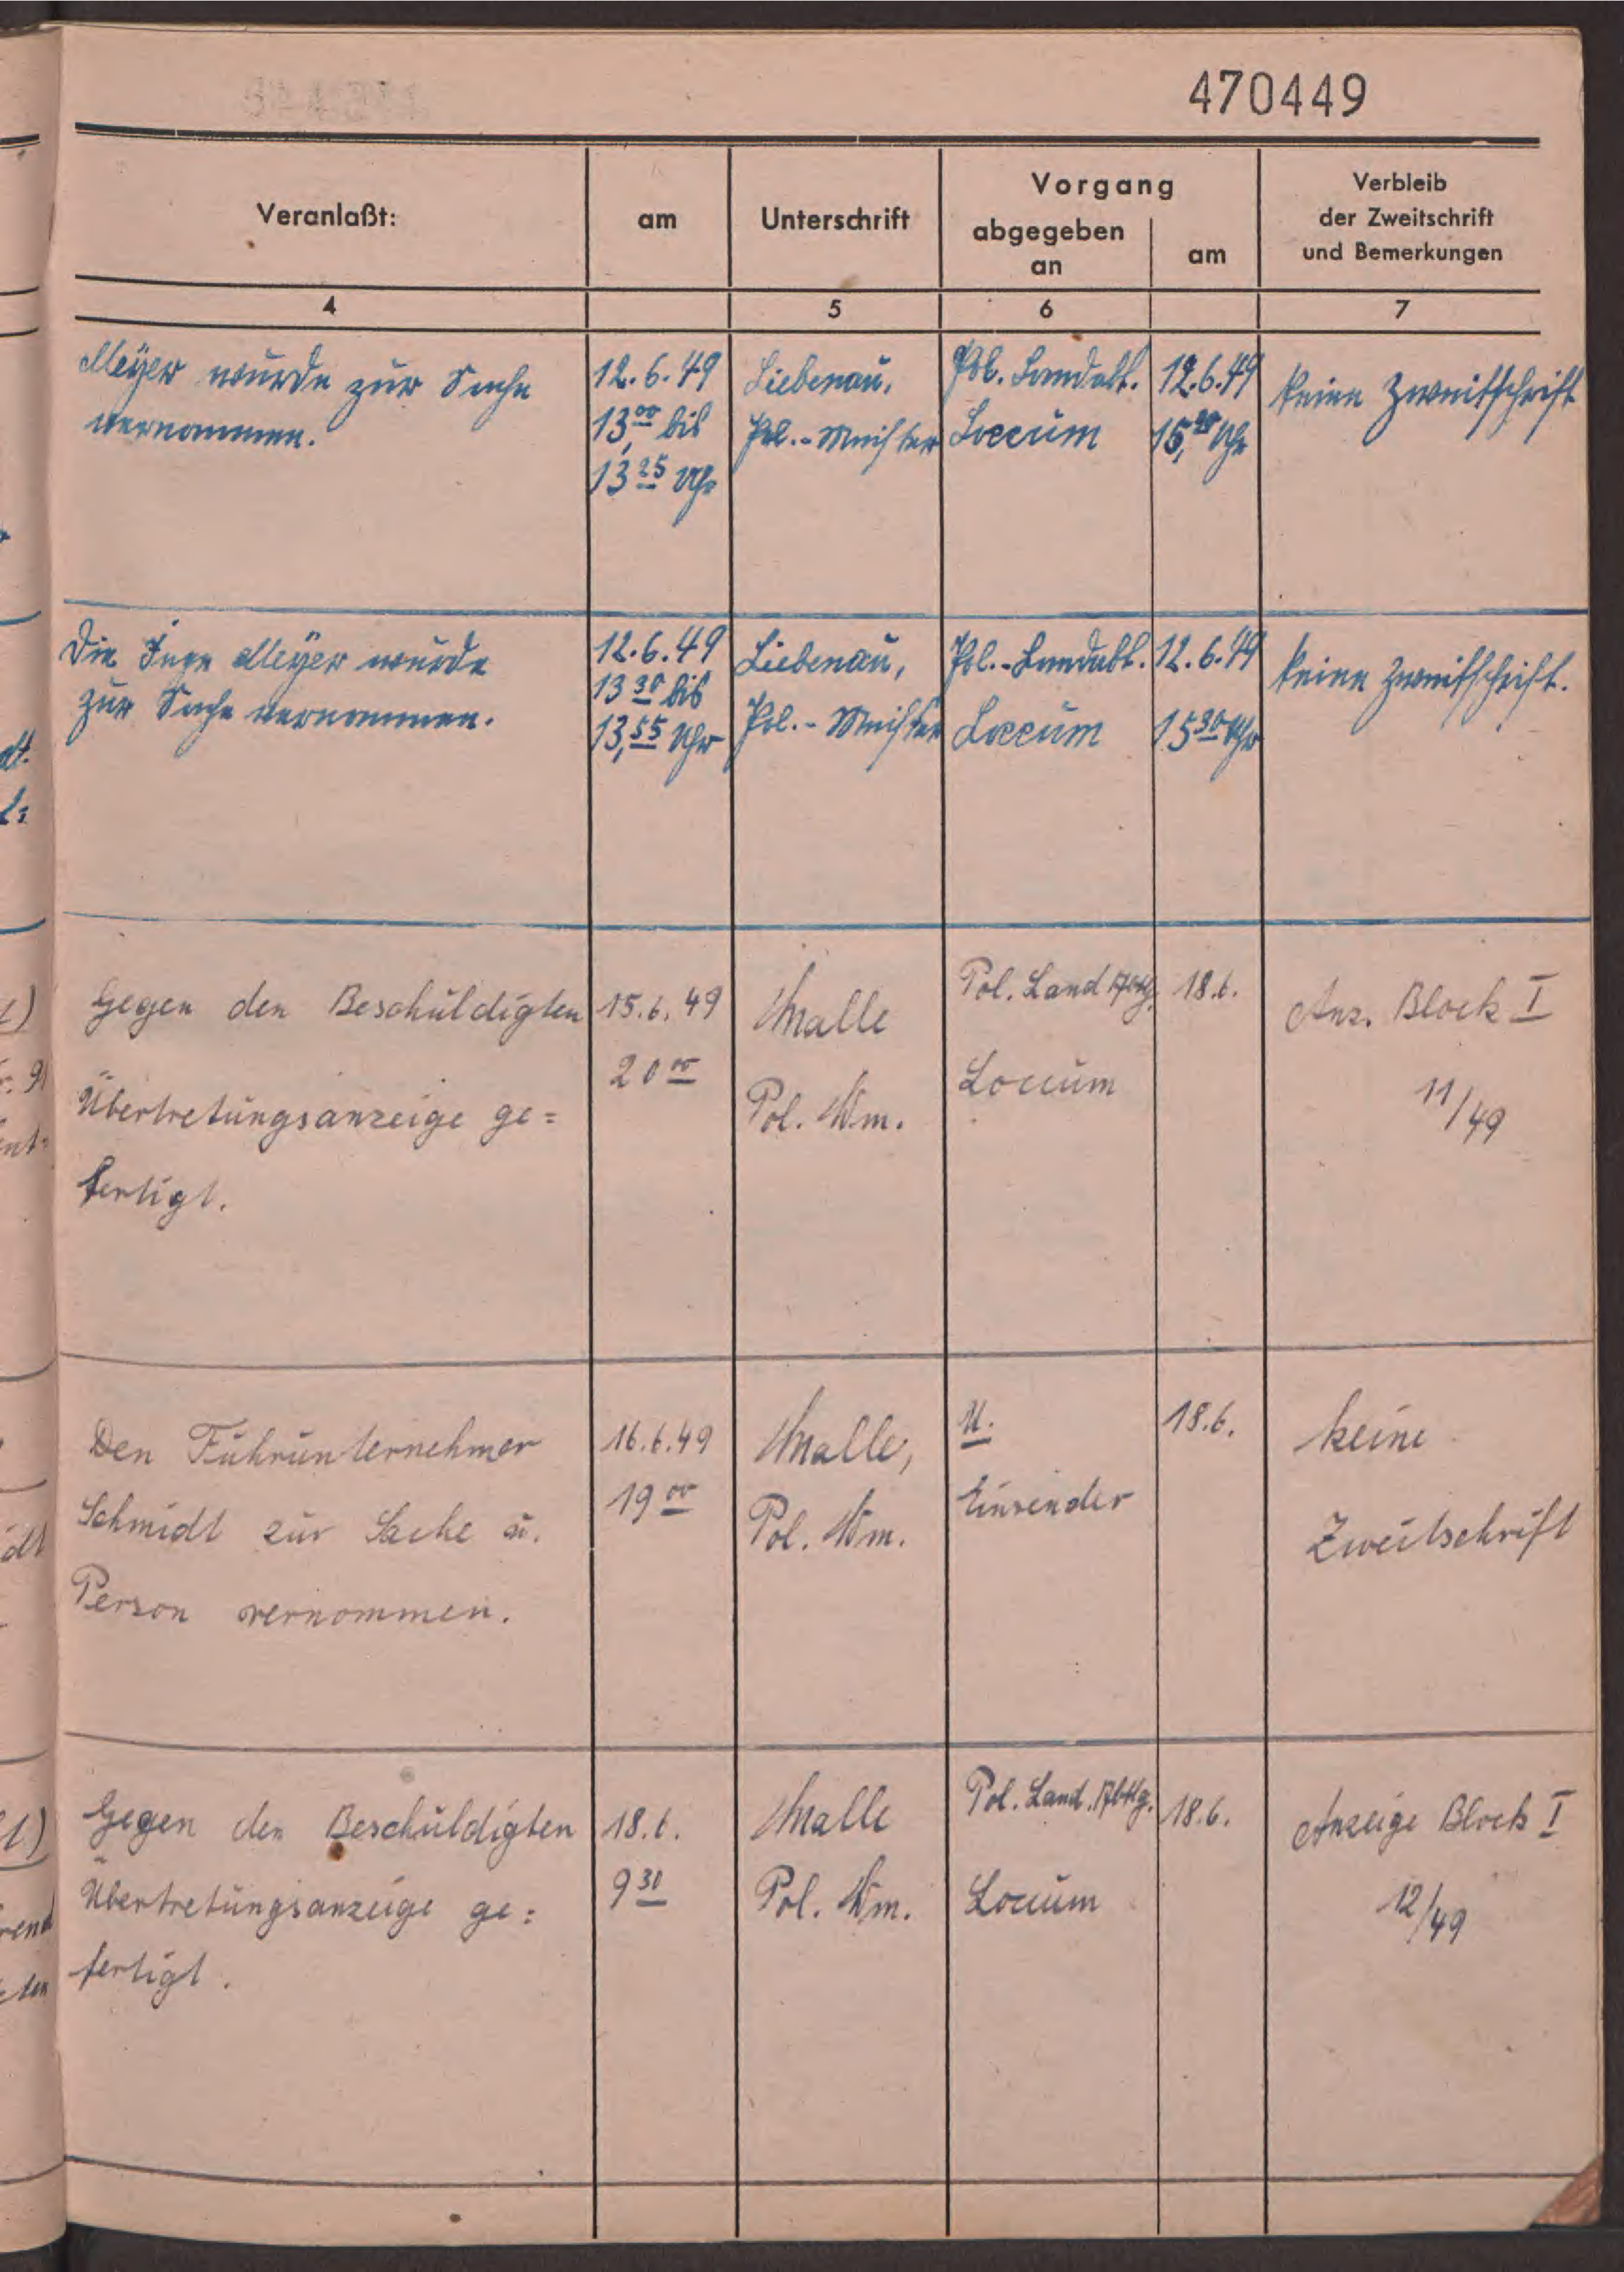 470449
Veranlaßt:
am
Unterschrift
Vorgang
abgegeben
an
am
Verbleib
der Zweitschrift
und Bemerkungen
4
5
6
7
Meyer wurde zur Sache
vernommen.
12.6.49
13,00 bis
13 25 Uhr
Liebenau,
Pol.-Meister
Pol. Landabt.
Loccum
12.6.49
15, Uhr
keine Zweitschrift
Die Inge Meyer wurde
zur Sache vernommen.
12.6.49
13 30 bis
13,55 Uhr
Liebenau,
Pol.-Meister
Pol.-Landabt.
Loccum
12.6.49
15 30 Uhr
keine Zweitschrift.
Gegen den Beschuldigten
Übertretungsanzeige ge=
fertigt.
15.6.49
20 00
Pol. Wm.
Pol. Land Abtlg.
Loccum
18.6.
Anz. Block I
11/49
Den Fuhrunternehmer
Schmidt zur Sache u.
Person vernommen.
16.6.49
19 00
Pol. Wm.
U.
Einsender
18.6.
keine
Zweitschrift
Gegen den Beschuldigten
Übertretungsanzeige ge=
fertigt.
18.6.
9 30
Pol. Wm.
Pol. Land. Abtlg.
Loccum
18.6.
Anzeige Block I
12/49